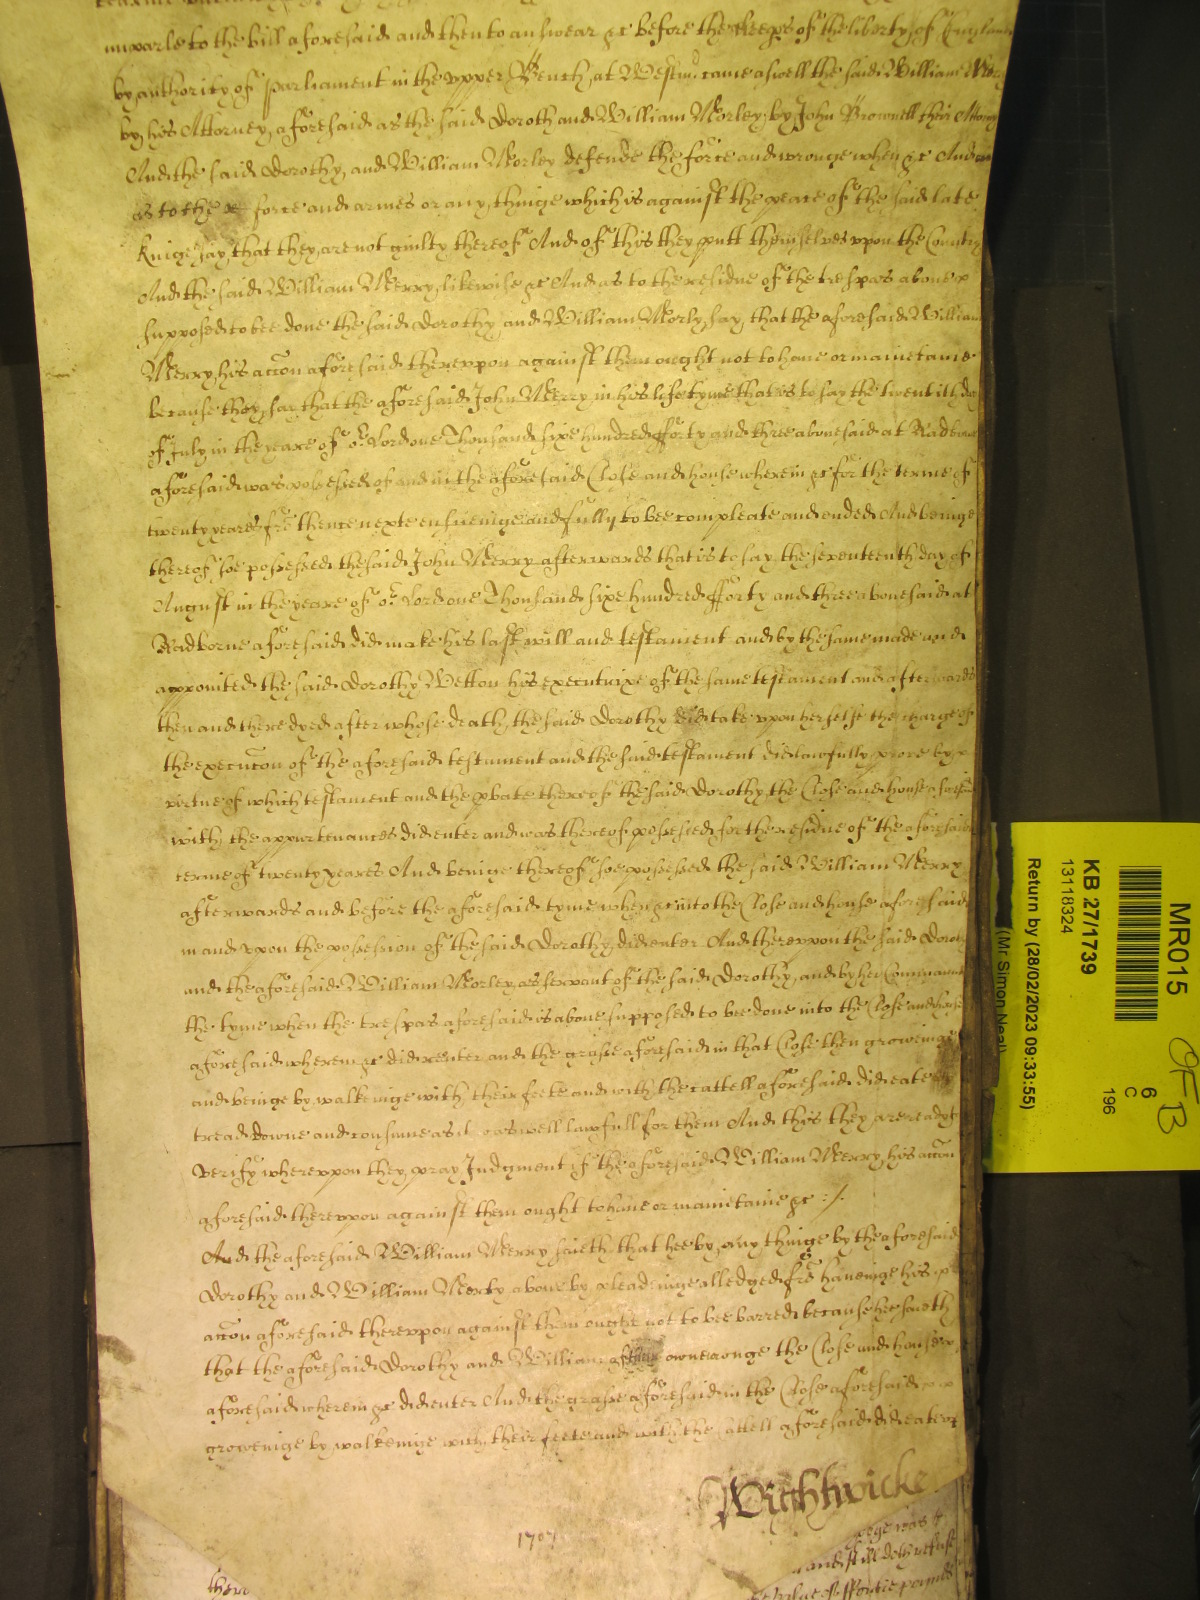 imparle to the bill aforesaid and then to answear &c before the keeps of the liberty of England
by authority of parliament in the vpper Bench at Westm came aswell the said William
by his Attorney aforesaid as the said Dorothy and William Morley by John Brownell their Attorny
And the said Dorothy and William Morley defende the force and wronge when &c And
as to the force and armes or any thinge which is against the peace of the said late
Kinge say that they are not guilty thereof And of this they putt themselves vpon the Country
And the said William Merry likewise &c And as to the residue of the trespas above
supposed to bee done the said Dorothy and William Morly say that the aforesaid William
Merry his accon aforesaid therevpon against them ought not to have or mainetaine
because they say that the aforesaid John Merry in his life tyme that is to say the twentith day
of July in the yeare of or Lord one Thousand sixe hundred fforty and three abovesaid at Radborne
aforesaid was possessed of and in the aforesaid Close and house wherein &c for the terme of
twenty yeares fro thence nexte ensueinge and fully to bee compleate and ended And beinge
thereof soe possessed the said John Merry afterwards that is to say the seventeenth day of
August in the yeare of or Lord one Thousand sixe hundred fforty and three abovesaid at
Radborne aforesaid did make his last will and testament and by the same made and
appointed the said Dorothy Wetton his executrixe of the same testament and afterwards
then and there dyed after whose death the said Dorothy did take vpon herselfe the charge of
the execucon of the aforesaid testament and the said testament did lawfully prove by
virtue of which testament and the pbate thereof the said Dorothy the Close and house aforesaid
with the appurtenances did enter and was thereof possessed for the residue of the aforesaid
terme of twenty yeares And beinge thereof soe possessed the said William Merry
afterwards and before the aforesaid tyme when &c into the Close and house aforesaid
in and vpon the possession of the said Dorothy did enter And therevpon the said Dorothy
and the aforesaid William Morley as servant of the said Dorothy and by her Command
the tyme when the trespas aforesaid is above supposed to bee done into the Close and house
aforesaid wherein &c did reenter and the grasse aforesaid in that Close then groweinge
and beinge by walkeinge with their feete and with the cattell aforesaid did eate
tread downe and consume as it was well lawfull for them And this they are ready to
verify wherevpon they pray Judgment if the aforesaid William Merry his accon
aforesaid therevpon against them ought to have or mainetaine &c
And the aforesaid William Merry saieth that hee by any thinge by the aforesaid
Dorothy and William above by pleadinge alledged fro haveinge his
accon aforesaid therevpon against them ought not to bee barred because hee saieth
that the aforesaid Dorothy and William of their owne wronge the Close and house
aforesaid wherein &c did enter And the grasse aforesaid in the Close aforesaid
groweinge by walkeinge with their feete and with the cattell aforesaid did eate
Wightwicke
1707
there
and still doth refuse
MR015
KB 27/1739
13118324
Return by (28/02/2023 09:33:55)
(Mr Simon Neal)
6
C
196
OFB